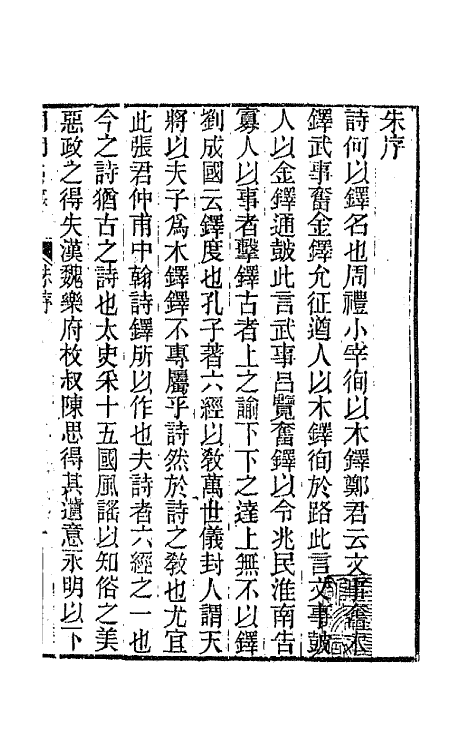 朱序
詩何以鐸名也周禮小宰徇以木鐸鄭君云文事奮木
鐸武事奮金鐸允征遒人以木鐸徇於路此言文事鼓
人以金鐸通鼓此言武事呂覽奮鐸以令兆民淮南告
寡人以事者擊鐸古者上之諭下下之達上無不以鐸
劉成國云鐸度也孔子著六經以敎萬世儀封人謂天
將以夫子爲木鐸鐸不專屬乎詩然於詩之敎也尤宜
此張君仲甫中翰詩鐸所以作也夫詩者六經之一也
今之詩猶古之詩也太史采十五國風謠以知俗之美
惡政之得失漢魏樂府枚叔陳思得其遺意永明以下
朱序